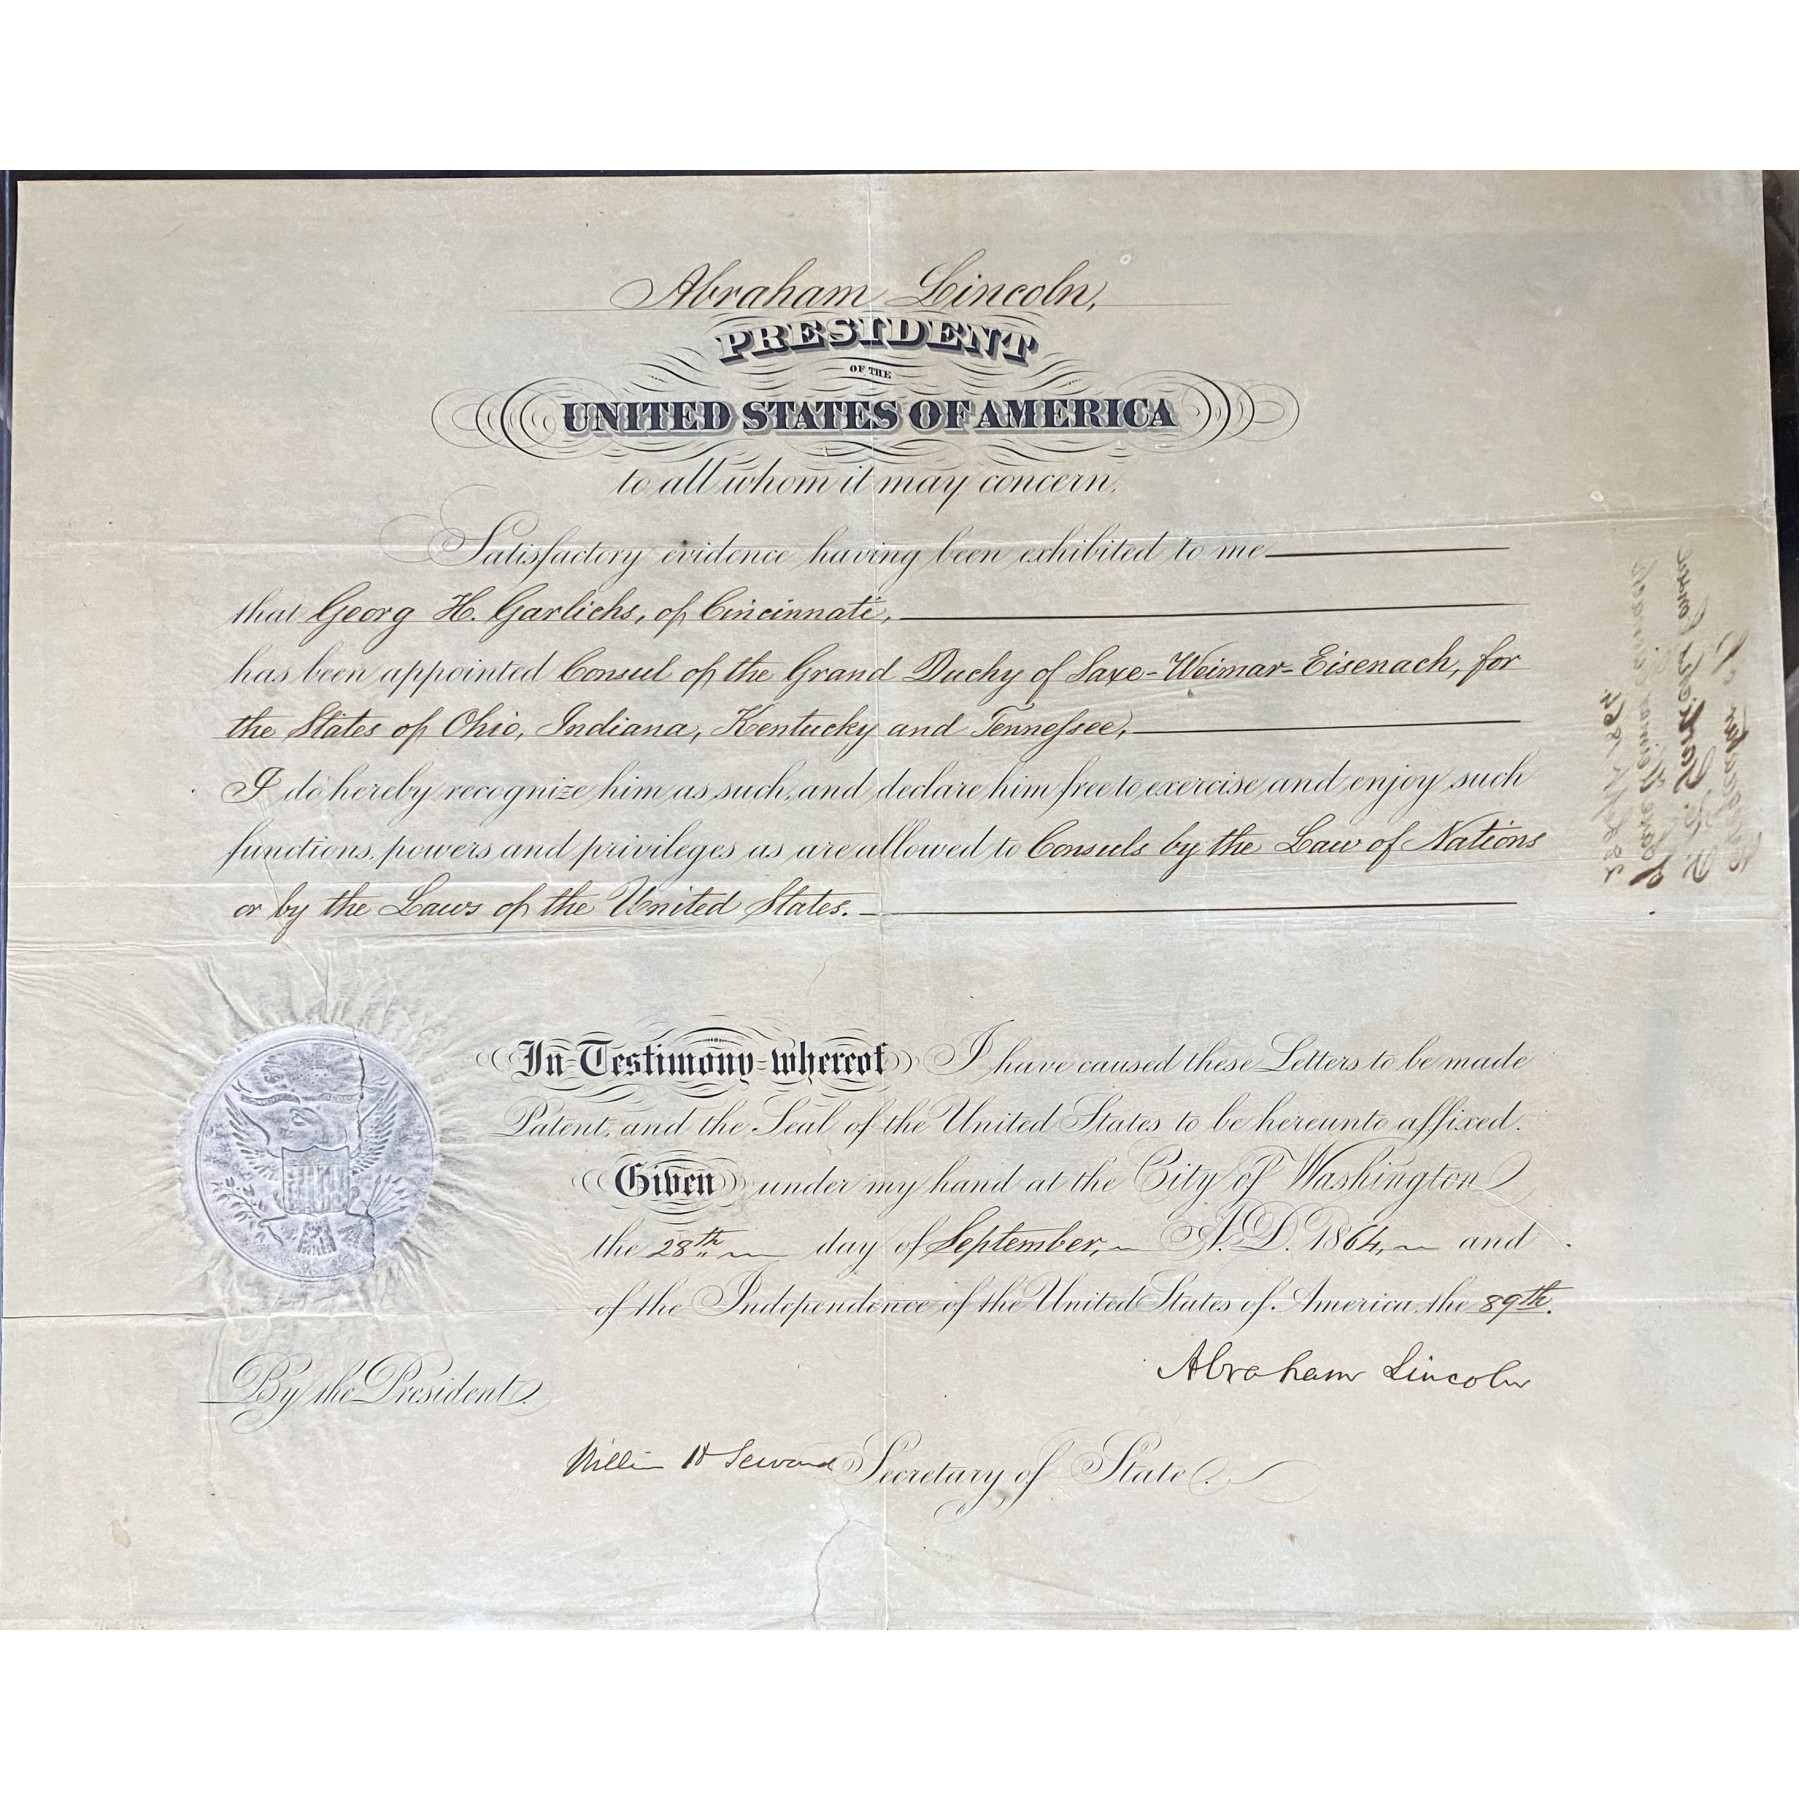 Abraham Lincoln,
PRESIDENT
OF THE
UNITED STATES OF AMERICA
to all whom it may concern.
Satisfactory evidence having been exhibited to me
that Georg H. Garlichs, of Cincinnati,
has been appointed Consul of the Grand Duchy of Saxe-Weimar-Eisenach, for
the States of Ohio, Indiana, Kentucky and Tennessee,
I do hereby recognize him as such, and declare him free to exercise and enjoy such
functions, powers and privileges as are allowed to Consuls by the Law of Nations
or by the Laws of the United States.
In Testimony whereof I have caused these Letters to be made
Patent, and the Seal of the United States to be hereunto affixed.
Given under my hand at the City of Washington
the 28th day of September, A.D. 1864, and
of the Independence of the United States of America, the 89th.
Abraham Lincoln
By the President.
William H Seward Secretary of State.